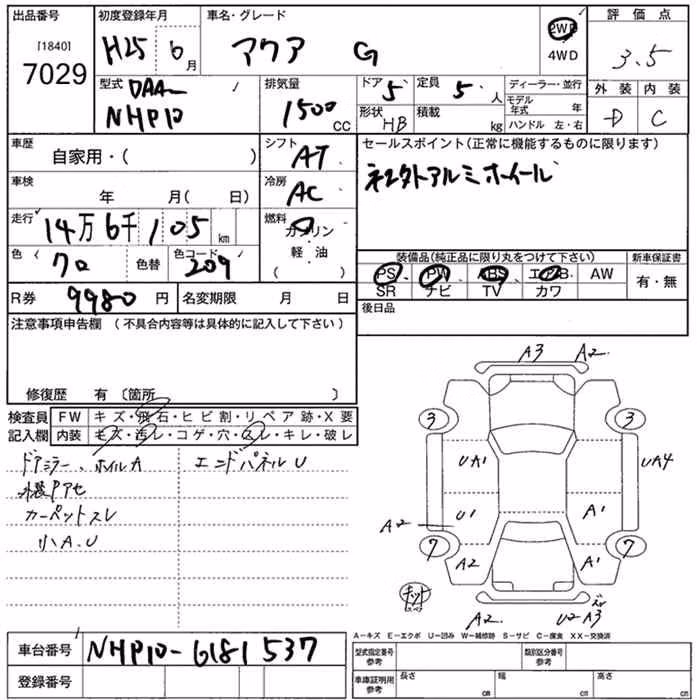 出品番号 初度登録年月 車名・グレード 評価点
[1840]
7029
H25 6月 アクア G
2WD
4WD
3.5
型式 DAA-
NHP10
排気量
1500
CC
ドア 5 定員 5 人
形状 HB 積載 kg
ディーラー・並行
モデル年式 年
ハンドル 左・右
外装 内装
D C
車歴
自家用・( )
シフト
AT
セールスポイント(正常に機能するものに限ります)
車検
年 月( 日)
冷房
AC
走行
14万6千105km
燃料
ガソリン
軽・油
( )
色 色替 色コード 209
装備品(純正品に限り丸をつけて下さい) 新車保証書
PS PW ABS エアB. AW 有・無
SR ナビ TV カワ
R券 9980円 名変期限 月 日
後日品
注意事項申告欄 (不具合内容等は具体的に記入して下さい)
修復歴 有 〔箇所 〕
検査員 FW キズ・飛石・ヒビ割・リペア跡・X要
記入欄 内装 キズ・汚レ・コゲ・穴・スレ・キレ・破レ
ドアミラー、ホイルA エンドパネルU
カーペットスレ
小A.U
A3 A2
3 3
UA1 UA4
A2 U1 A1
7 7
A2 A1
キット
A2 U2 A3
A-キズ E-エクボ U-凹み W-補修跡 S-サビ C-腐食 XX-交換済
車台番号 NHP10-6181537
登録番号
型式指定番号 参考 類別区分番号 参考
車庫証明用 参考 長さ cm 幅 cm 高さ cm